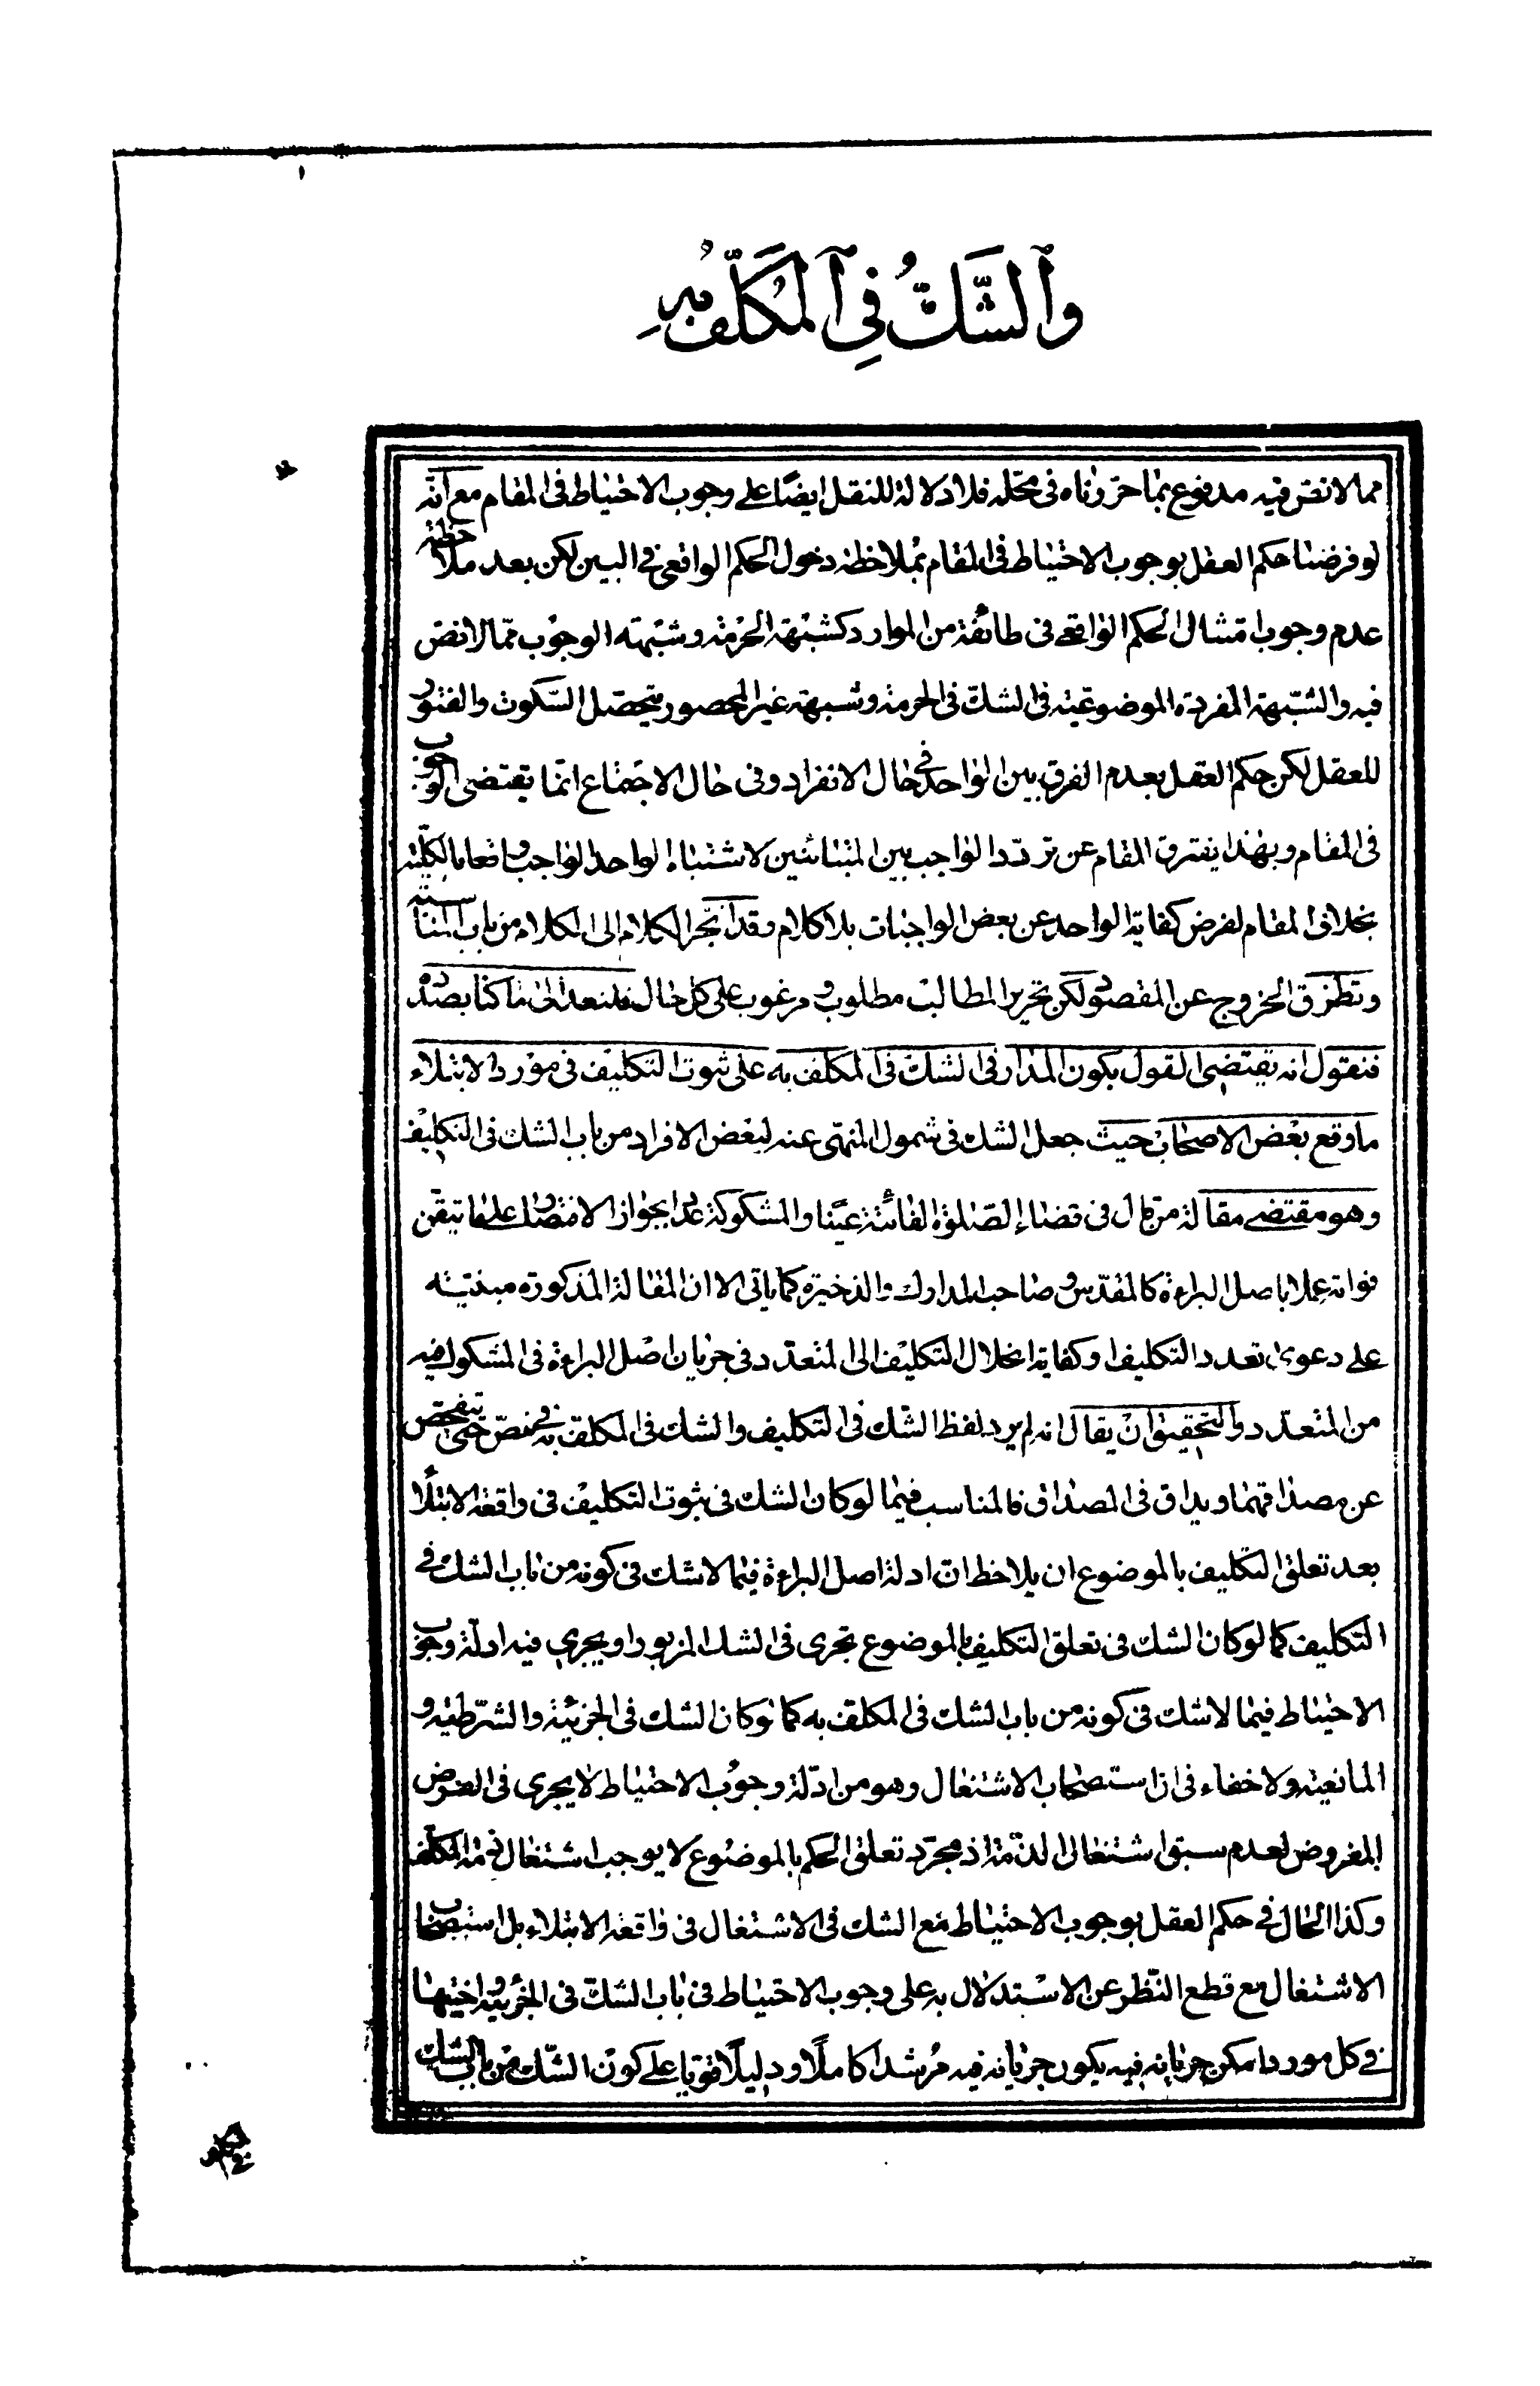 والشك في المكلف به
مما لا نص فيه مدفوع بما حررناه فى محله فلا دلالة للنقل ايضا على وجوب الاحتياط فى المقام مع انه
لو فرضنا حكم العقل بوجوب الاحتياط فى المقام بملاحظة دخول الحكم الواقعى فى البين لكن بعد ملاحظة
عدم وجوب امتثال الحكم الواقعى فى طائفة من الموارد كشبهة الحرمة وشبهة الوجوب مما لا نص
فيه والشبهة المفردة الموضوعية فى الشك فى الحرمة وشبهة غير المحصور يتحصل السكوت والفتور
للعقل لكن حكم العقل بعدم الفرق بين الواحد فى حال الانفراد وفى حال الاجتماع انما يقتضى الوجوب
فى المقام وبهذا يفترق المقام عن تردد الواجب بين المتبائنين لاشتباه الواحد الواجب واقعا بالكلية
بخلاف المقام لفرض كفاية الواحد عن بعض الواجبات بلا كلام وقد انجر الكلام الى الكلام من باب المناسبة
وتطرق الخروج عن المقصود لكن تحرير المطالب مطلوب ومرغوب على كل حال فلنعد الى ما كنا بصدده
فنقول انه يقتضى القول بكون المدار فى الشك فى المكلف به على ثبوت التكليف فى مورد الابتلاء
ما وقع بعض الاصحاب حيث جعل الشك فى شمول المنهى عنه لبعض الافراد من باب الشك فى التكليف
وهو مقتضى مقالة من قال فى قضاء الصلوة الفائتة عينا والمشكوكة عددا بجواز الاقتصار على ما تيقن
فواته عملا باصل البراءة كالمقدس وصاحب المدارك والذخيرة كما ياتى الا ان المقالة المذكورة مبنية
على دعوى تعدد التكليف او كفاية انحلال التكليف الى المتعدد فى جريان اصل البراءة فى المشكوك فيه
من المتعدد والتحقيق ان يقال انه لم يرد لفظ الشك فى التكليف والشك فى المكلف به فى نص حتى يتفحص
عن مصداقهما ويداق فى المصداق فالمناسب فيما لو كان الشك فى ثبوت التكليف فى واقعة الابتلاء
بعد تعلق التكليف بالموضوع ان يلاحظ ان ادلة اصل البراءة فيما لا شك فى كونه من باب الشك فى
التكليف كما لو كان الشك فى تعلق التكليف بالموضوع تجرى فى الشك المزبور او يجرى فيه ادلة وجوب
الاحتياط فيما لا شك فى كونه من باب الشك فى المكلف به كما لو كان الشك فى الجزئية والشرطية و
المانعية ولا خفاء فى ان استصحاب الاشتغال وهو من ادلة وجوب الاحتياط لا يجرى فى الفرض
المفروض لعدم سبق اشتغال الذمة اذ مجرد تعلق الحكم بالموضوع لا يوجب اشتغال ذمة المكلف
وكذا الحال فى حكم العقل بوجوب الاحتياط مع الشك فى الاشتغال فى واقعة الابتلاء بل استصحاب
الاشتغال مع قطع النظر عن الاستدلال به على وجوب الاحتياط فى باب الشك فى الجزئية واختيها
فى كل مورد امكن جريانه فيه يكون جريانه فيه مرشدا كاملا ودليلا قويا على كون الشك من باب الشك